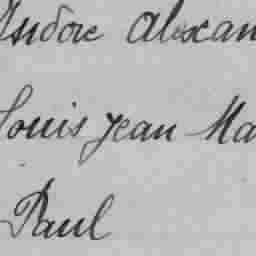 Isidore Alexan
Louis Jean Ma
Paul